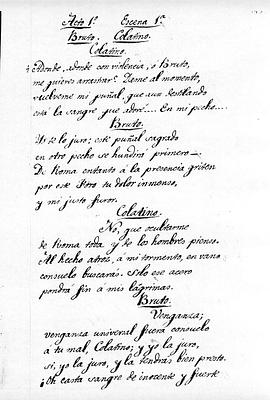 Acto 1º Escena 1ª
Bruto. Colatino.
Colatino.
¿Adonde, adonde con violencia, ó Bruto,
me quieres arrastrar? Dame al momento,
vuelveme mi puñal, que aun destilando
está la sangre que adoré.... En mi pecho....
Bruto.
Yo te lo juro; este puñal sagrado
en otro pecho se hundirá primero—.
De Roma entanto á la presencia griten
por este Foro tu dolor inmenso,
y mi justo furor.
Colatino.
No, que ocultarme
de Roma toda y de los hombres pienso.
Al hecho atroz, á mi tormento, en vano
consuelo buscarás. Solo ese acero
pondrá fin á mis lágrimas.
Bruto.
Venganza;
venganza universal fuera consuelo
a tu mal, Colatino; y yo la juro,
si, yo la juro, y la tendrás bien presto.
¡Oh casta sangre de inocente y fuerte